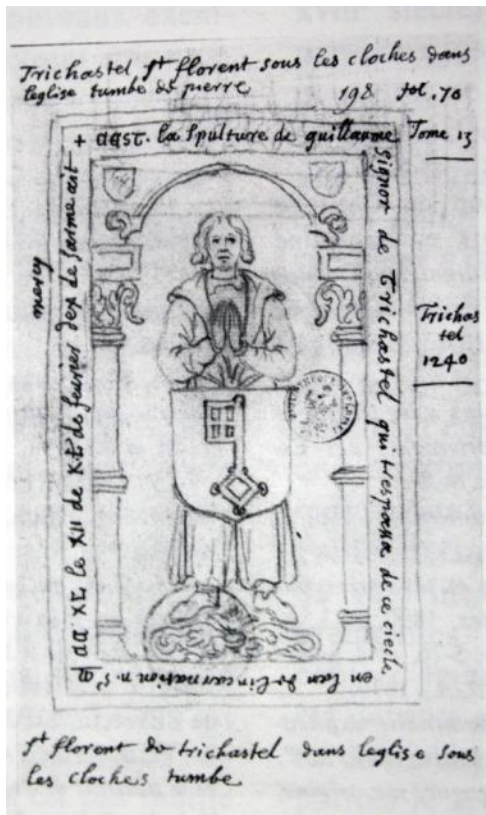 Trichastel St florent sous les cloches dans
leglise tumbe de pierre 198 fol. 70
Tome 13
+ aast. la Spulture de guillaume
Signor de Trichastel qui trespassa de ce ciecle
en lan de lincarnation n. S.
cc XL le XII de de feuvrier dex de sarme ait
mercy
Trichas
tel
1240
St florent de trichastel dans leglise sous
les cloches tumbe